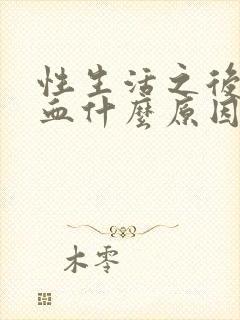 性生活之後
血什麼原因
木零